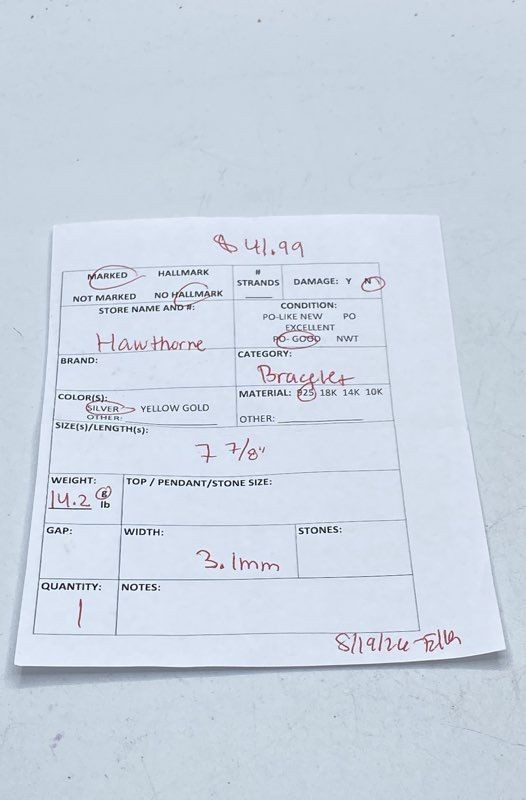 $41.99
MARKED HALLMARK
NOT MARKED NO HALLMARK
# STRANDS
DAMAGE: Y N
STORE NAME AND #:
Hawthorne
CONDITION:
PO-LIKE NEW PO
EXCELLENT
PO- GOOD NWT
BRAND:
CATEGORY:
Bracelet
COLOR(S):
SILVER YELLOW GOLD
OTHER:
MATERIAL: 925 18K 14K 10K
OTHER:
SIZE(S)/LENGTH(S):
7 7/8"
WEIGHT:
14.2 g
lb
TOP / PENDANT/STONE SIZE:
GAP:
WIDTH:
3.1mm
STONES:
QUANTITY:
1
NOTES: